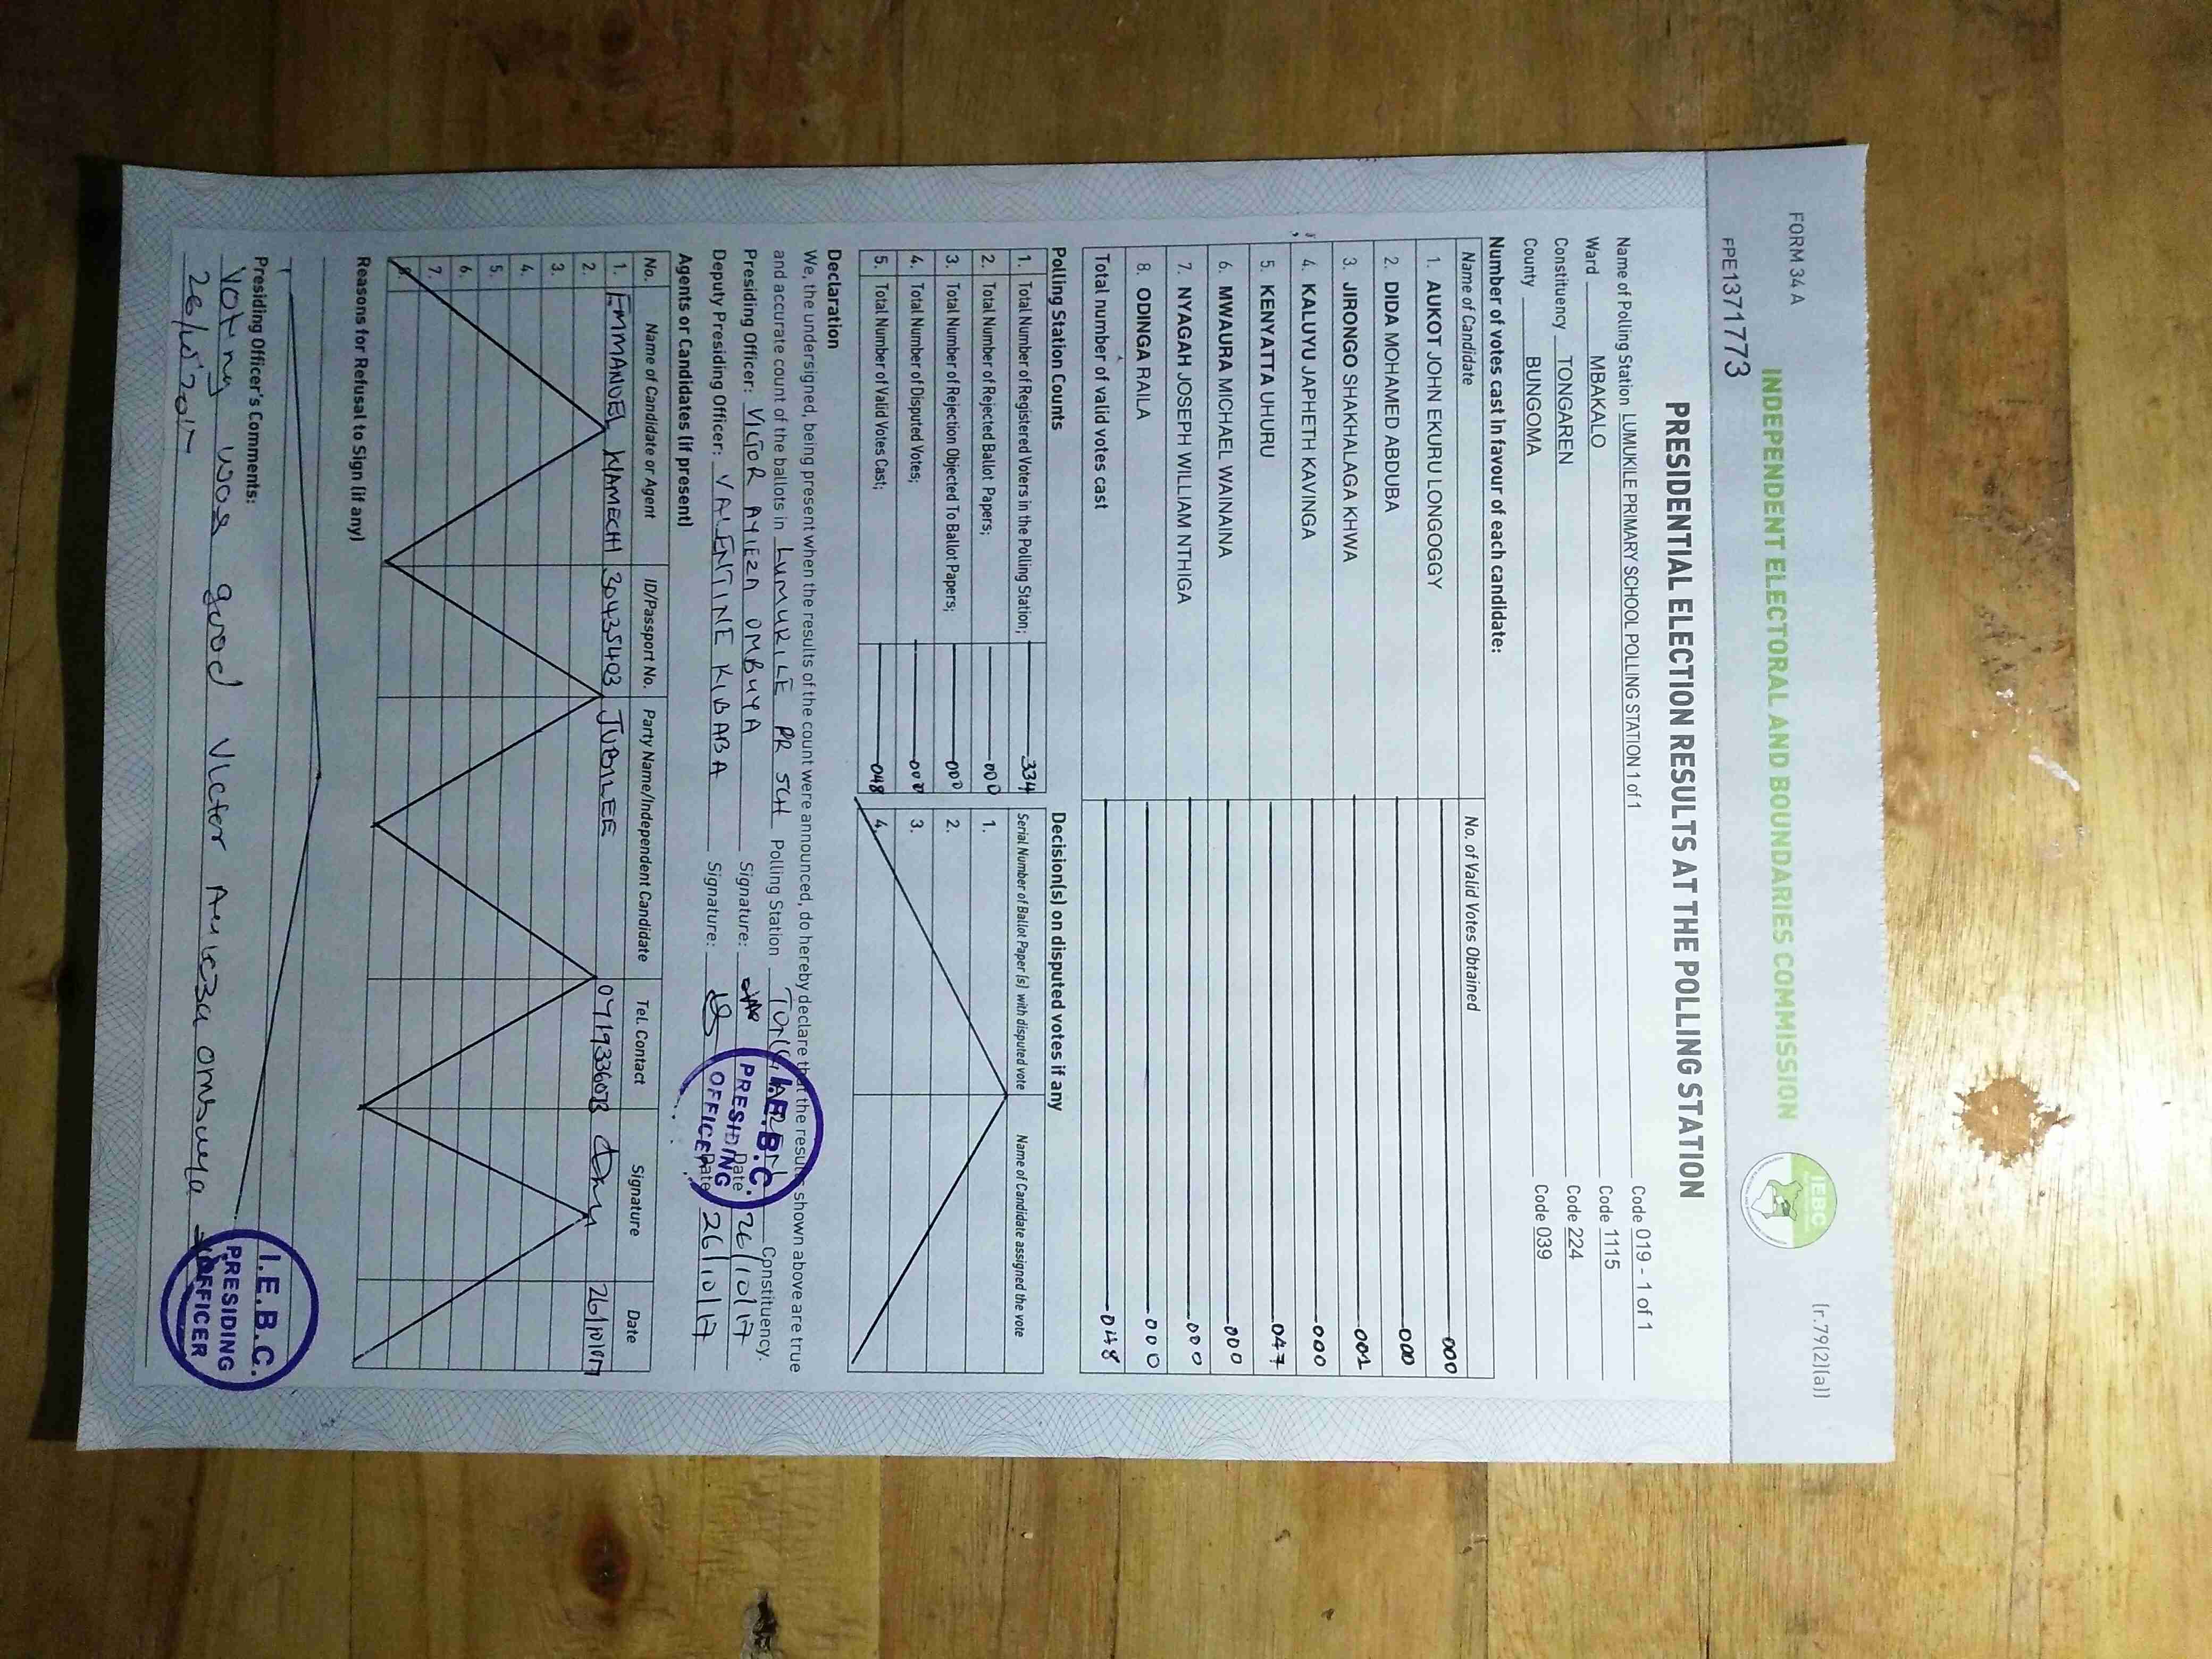 FORM 34 A
(r.79(2)(a))
INDEPENDENT ELECTORAL AND BOUNDARIES COMMISSION
IEBC
FPE1371773
PRESIDENTIAL ELECTION RESULTS AT THE POLLING STATION
Name of Polling Station LUMUKILE PRIMARY SCHOOL POLLING STATION 1 of 1 Code 019 - 1 of 1
Ward MBAKALO Code 1115
Constituency TONGAREN Code 224
County BUNGOMA Code 039
Number of votes cast in favour of each candidate:
Name of Candidate No. of Valid Votes Obtained
1. AUKOT JOHN EKURU LONGOGGY 000
2. DIDA MOHAMED ABDUBA 000
3. JIRONGO SHAKHALAGA KHWA 001
4. KALUYU JAPHETH KAVINGA 000
5. KENYATTA UHURU 047
6. MWAURA MICHAEL WAINAINA 000
7. NYAGAH JOSEPH WILLIAM NTHIGA 000
8. ODINGA RAILA 000
Total number of valid votes cast 048
Polling Station Counts
1. Total Number of Registered Voters in the Polling Station; 334
2. Total Number of Rejected Ballot Papers; 000
3. Total Number of Rejection Objected To Ballot Papers; 000
4. Total Number of Disputed Votes; 000
5. Total Number of Valid Votes Cast; 048
Decision(s) on disputed votes if any
Serial Number of Ballot Paper(s) with disputed vote Name of Candidate assigned the vote
1.
2.
3.
4.
Declaration
We, the undersigned, being present when the results of the count were announced, do hereby declare that the results shown above are true
and accurate count of the ballots in LUMUKILE PR SCH Polling Station TONGAREN Constituency.
Presiding Officer: VICTOR AYIEZA OMBUYA Signature: Date 26/10/17
Deputy Presiding Officer: VALENTINE KIBABA Signature: Date 26/10/17
I.E.B.C.
PRESIDING
OFFICER
Agents or Candidates (if present)
No. Name of Candidate or Agent ID/Passport No. Party Name/Independent Candidate Tel. Contact Signature Date
1. EMMANUEL WAMECHI 30435403 JUBILEE 26/10/017
2.
3.
4.
5.
6.
7.
8.
Reasons for Refusal to Sign (if any)
Presiding Officer's Comments:
Voting was good Victor Ayieza Ombuya
26/10/2017
I.E.B.C.
PRESIDING
OFFICER